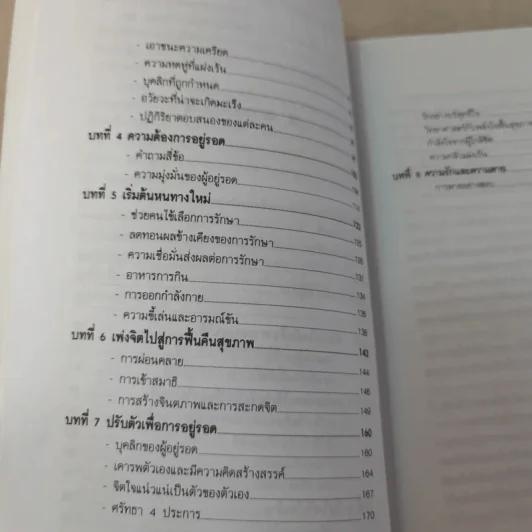 - เอาชนะความเครียด
- ความหดหู่ที่แฝงเร้น
- บุคลิกที่ถูกกำหนด
- อวัยวะที่น่าจะเกิดมะเร็ง
- ปฏิกิริยาตอบสนองของแต่ละคน
บทที่ 4 ความต้องการอยู่รอด
- คำถามสี่ข้อ
- ความมุ่งมั่นของผู้อยู่รอด
บทที่ 5 เริ่มต้นหนทางใหม่
- ช่วยคนไข้เลือกการรักษา
- ลดทอนผลข้างเคียงของการรักษา
- ความเชื่อมั่นส่งผลต่อการรักษา
- อาหารการกิน 131
- การออกกำลังกาย 134
- ความขี้เล่นและอารมณ์ขัน
บทที่ 6 เพ่งจิตไปสู่การฟื้นคืนสุขภาพ
- การผ่อนคลาย 144
- การเข้าสมาธิ 146
- การสร้างจินตภาพและการสะกดจิต 149
บทที่ 7 ปรับตัวเพื่อการอยู่รอด 160
- บุคลิกของผู้อยู่รอด 160
- เคารพตัวเองและมีความคิดสร้างสรรค์ 164
- จิตใจแน่วแน่เป็นตัวของตัวเอง 167
- ศรัทธา 4 ประการ 170
บทที่ 8 ความรักและความตาย